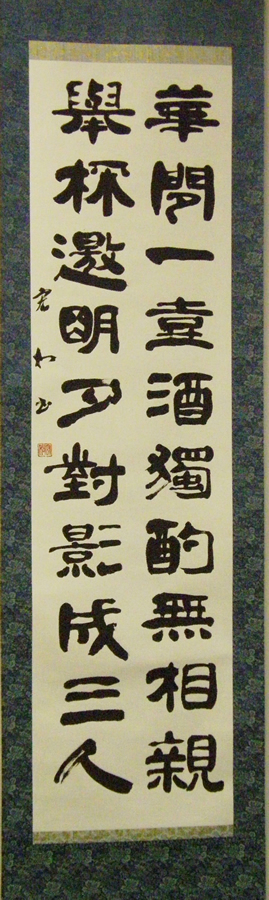 華間一壺酒獨酌無相親
舉杯邀明月對影成三人